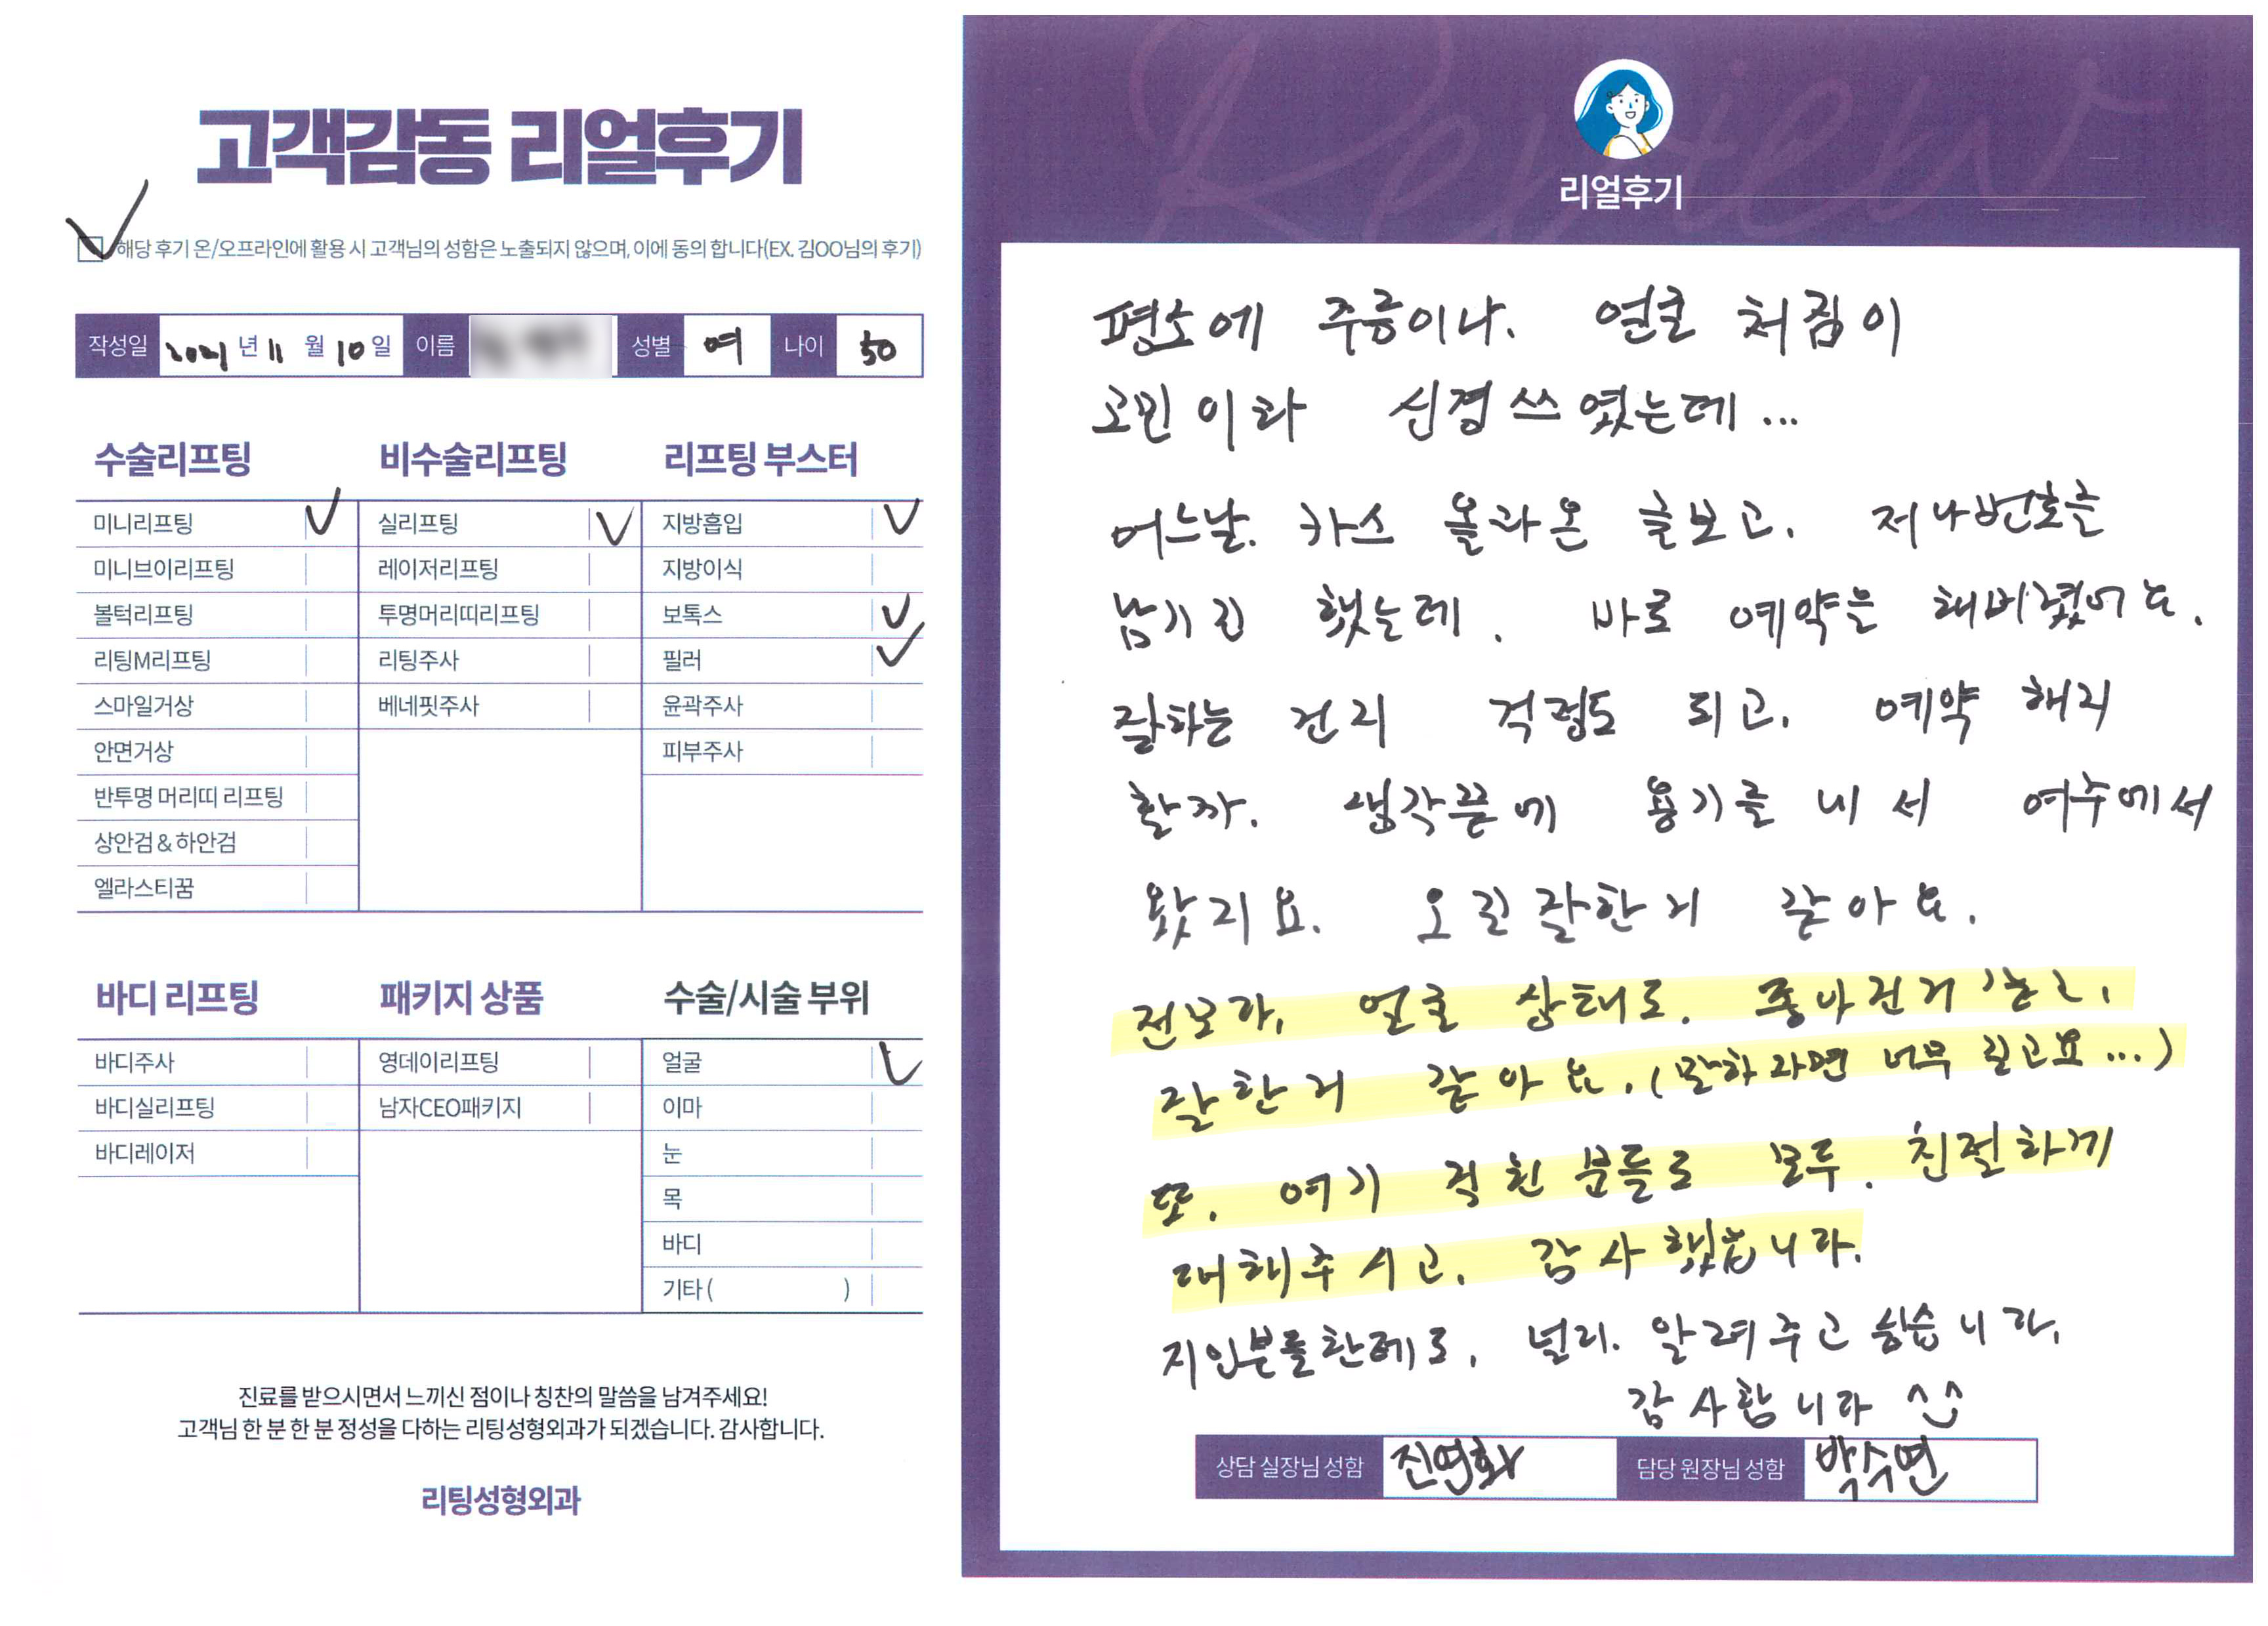 고객감동 리얼후기
해당 후기 온/오프라인에 활용 시 고객님의 성함은 노출되지 않으며, 이에 동의 합니다(EX. 김OO님의 후기)
작성일 2021년 11월 10일 이름 성별 여 나이 50
수술리프팅
미니리프팅
미니브이리프팅
볼턱리프팅
리팅M리프팅
스마일거상
안면거상
반투명 머리띠 리프팅
상안검 & 하안검
엘라스티꿈
비수술리프팅
실리프팅
레이저리프팅
투명머리띠리프팅
리팅주사
베네핏주사
리프팅 부스터
지방흡입
지방이식
보톡스
필러
윤곽주사
피부주사
바디 리프팅
바디주사
바디실리프팅
바디레이저
패키지 상품
영데이리프팅
남자CEO패키지
수술/시술 부위
얼굴
이마
눈
목
바디
기타 ( )
진료를 받으시면서 느끼신 점이나 칭찬의 말씀을 남겨주세요!
고객님 한 분 한 분 정성을 다하는 리팅성형외과가 되겠습니다. 감사합니다.
리팅성형외과
Review
리얼후기
평소에 주름이나. 얼굴 처짐이
고민이라 신경쓰였는데...
어느날. 카스 올라온 글보고. 저나번호를
남기긴 했는데. 바로 예약을 해버렸어요.
잘하는 건지 걱정도 되고. 예약 해지
할까. 생각끝에 용기를 내서 여주에서
왔지요. 오길잘한거 같아요.
전보다. 얼굴 상태도. 좋아진거
잘한거 같아요. (말하자면 너무 길고요...)
또. 여기 직원분들도 모두. 친절하게
대해주시고. 감사했습니다.
지인분들한테도. 널리. 알려주고 싶습니다.
감사합니다 ^^
상담 실장님 성함 진영화 담당 원장님 성함 박수연